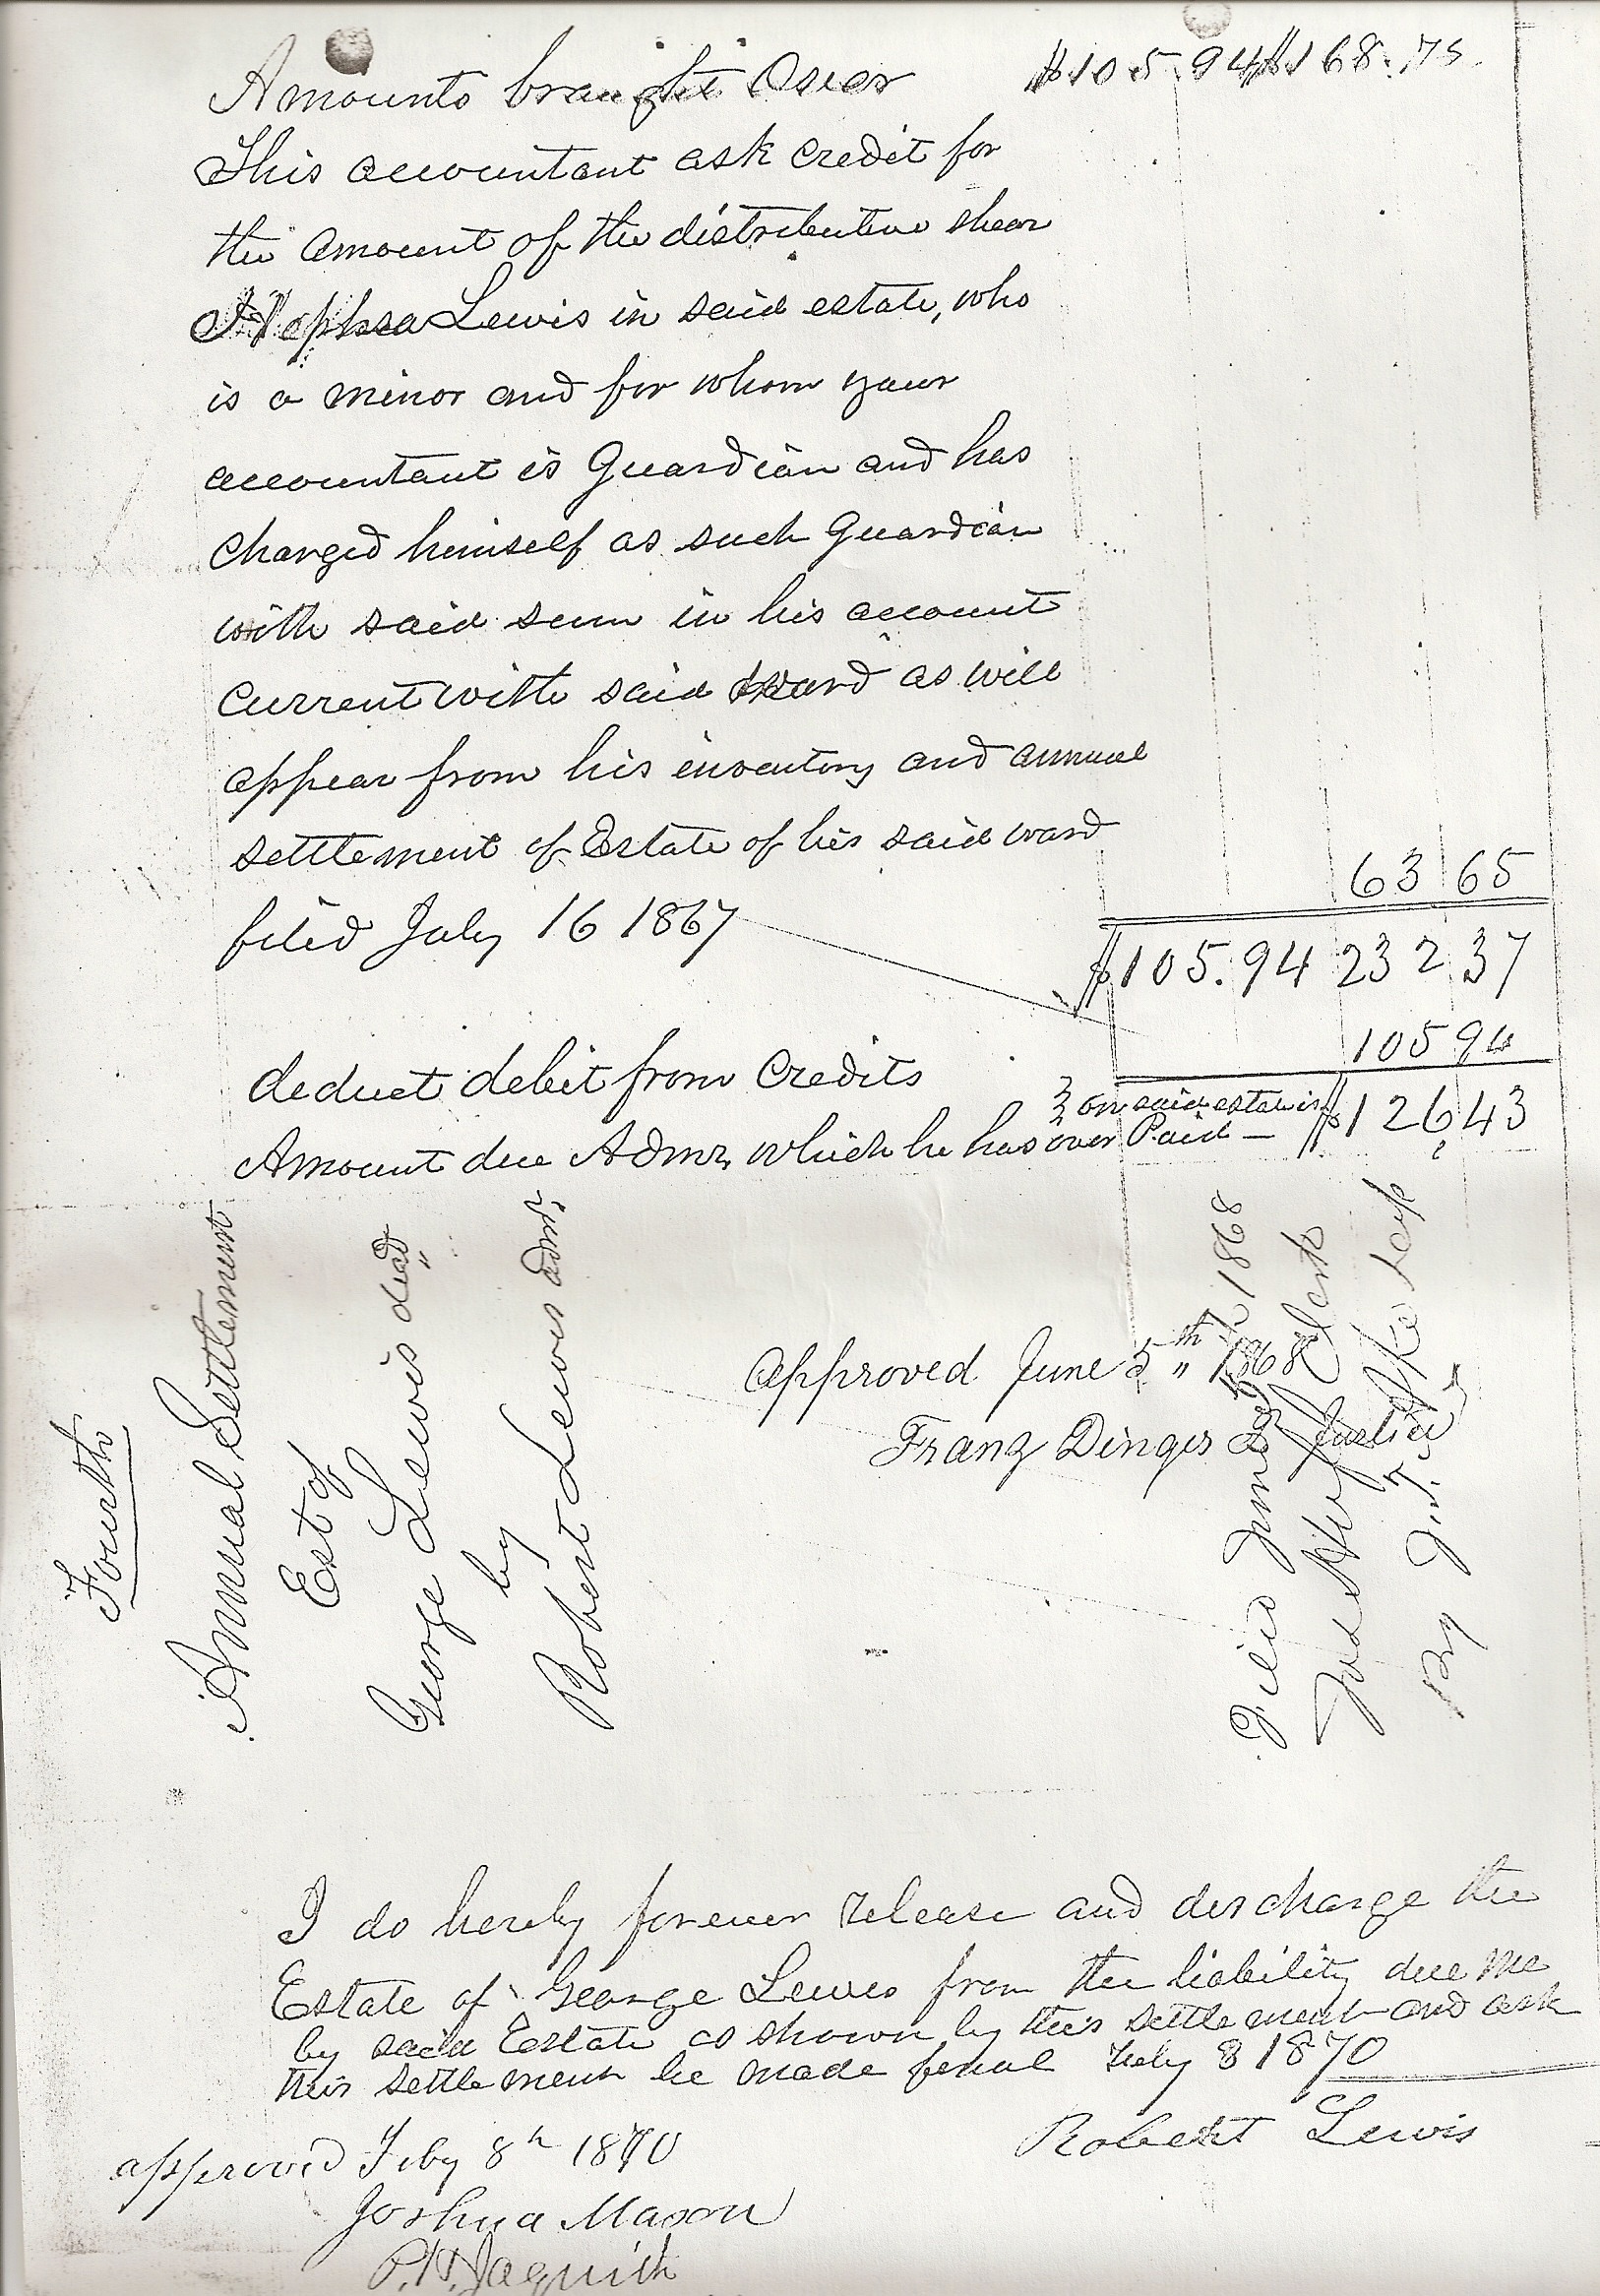 Amounts brought Over $105.94 $168.75
This accountant ask credit for
the amount of the distributive shear
of Lewis in said estate, who
is a minor and for whom your
accountant is Guardian and has
charged himself as such Guardian
with said sum in his account
Current with said ward as will
appear from his inventory and annual
settlement of Estate of his said ward
filed July 16 1867
63 65
$105.94 232 37
deduct debit from Credits 105 94
Amount due Admr, which he has over Paid — $126.43
on said estate is
Fourth
Annual Settlement
Est of
George Lewis decd
by
Robert Lewis admr
approved June 5th 1868
Franz Dinger Justice
Filed June 5 1868
Clerk
By J.T.
I do hereby forever release and discharge the
Estate of George Lewis from the liability due me
by said Estate as shown by this settlement and ask
this settlement be made final Feby 8 1870
Robert Lewis
approved Feby 8th 1870
Joshua Mason
P.H. Jaquith